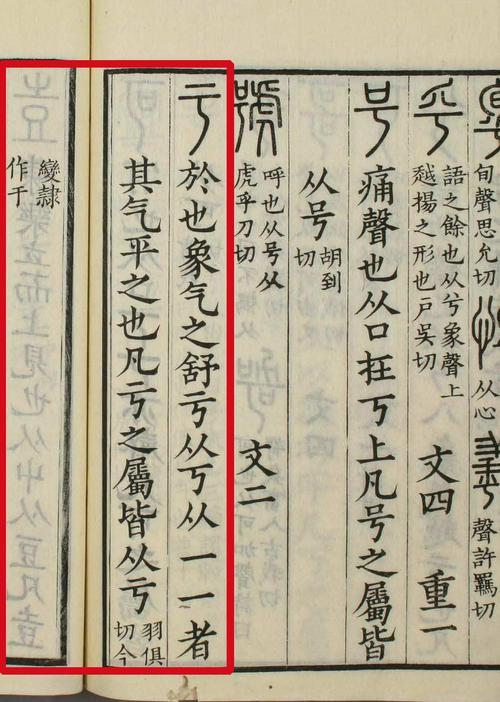 旬聲思允切
从心
聲許羈切
乎
語之餘也从兮象聲上
越揚之形也戶吳切
文四 重一
号 痛聲也从口在丂上凡号之屬皆
从号 胡到
切
號
呼也从号从
虎乎刀切
文二
亏 於也象气之舒亏从丂从一一者
其气平之也凡亏之屬皆从亏 羽俱
切今
變隸
作于